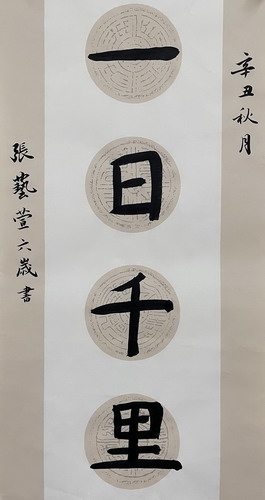 辛丑秋月
一日千里
張藝萱六歲書